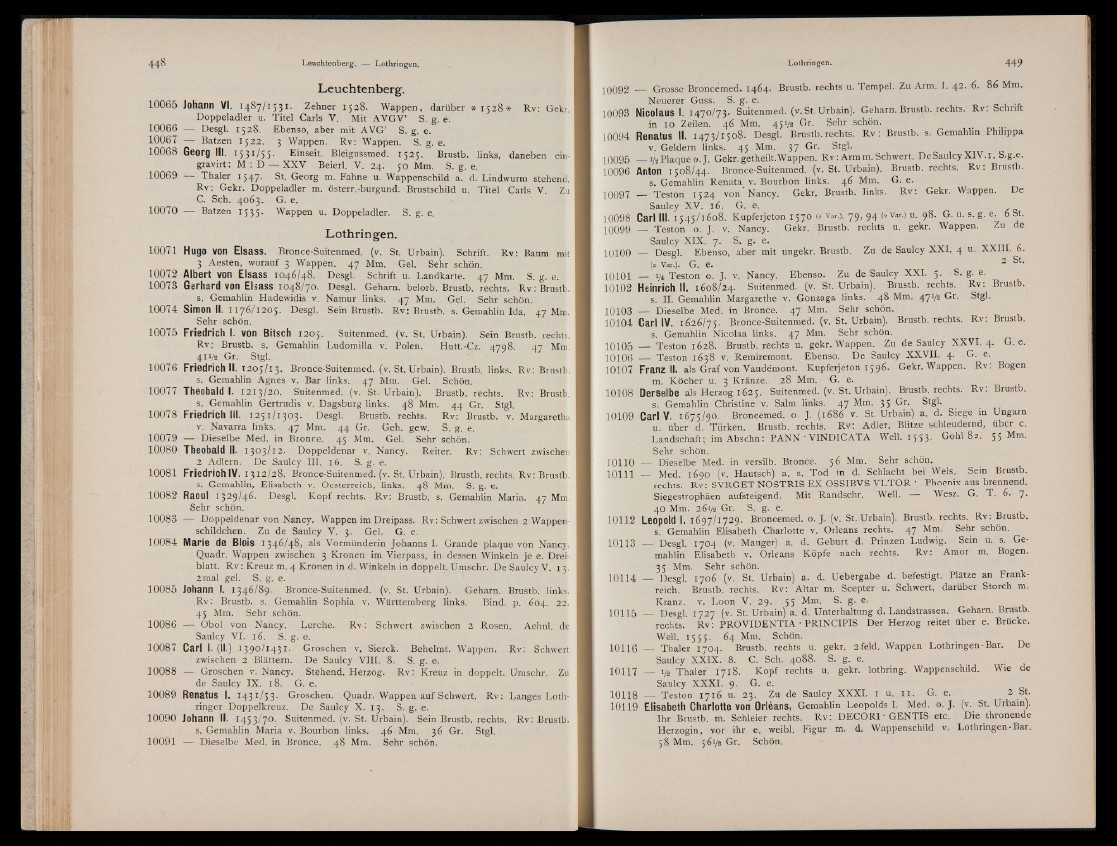 448 Leuchtenberg. — Lothringen.
Leuchtenberg.
10065 Johann VI. 1487/1531. Zehner 1528. Wappen, darüber * 1528 * Rv: Gekr.
Doppeladler u. Titel Carls V. Mit AVGV' S. g. e.
10066 — Desgl. 1528. Ebenso, aber mit AVG' S. g. e.
10067 — Batzen 1522. 3 Wappen. Rv: Wappen. S. g. e.
10068 Georg III. 1531/55. Einseit. Bleigussmed. 1525. Brustb. links, daneben ein-
gravirt: M : D — XXV Beierl. V. 24. 50 Mm. S. g. e.
10069 — Thaler 1547. St. Georg m. Fahne u. Wappenschild a. d. Lindwurm stehend.
Rv: Gekr. Doppeladler m. österr.-burgund. Brustschild u. Titel Carls V. Zu
C. Sch. 4063. G. e.
10070 — Batzen 1535. Wappen u. Doppeladler. S. g. e.
Lothringen.
10071 Hugo von Elsass. Bronce-Suitenmed. (v. St. Urbain). Schrift. Rv: Baum mit
3 Aesten, worauf 3 Wappen. 47 Mm. Gel. Sehr schön.
10072 Albert von Elsass 1046/48. Desgl. Schrift u. Landkarte. 47 Mm. S. g. e.
10073 Gerhard von Elsass 1048/70. Desgl. Geharn. belorb. Brustb. rechts. Rv: Brustb.
s. Gemahlin Hadewidis v. Namur links. 47 Mm. Gel. Sehr schön.
10074 Simon II. 1176/1205. Desgl. Sein Brustb. Rv: Brustb. s. Gemahlin Ida. 47 Mm.
Sehr schön.
10075 Friedrich I. von Bitsch 1205. Suitenmed. (v. St. Urbain). Sein Brustb. rechts.
Rv: Brustb. s. Gemahlin Ludomilla v. Polen. Hutt.-Cz. 4798. 47 Mm.
41½ Gr. Stgl.
10076 Friedrich II. 1205/13. Bronce-Suitenmed. (v. St. Urbain). Brustb. links. Rv: Brustb.
s. Gemahlin Agnes v. Bar links. 47 Mm. Gel. Schön.
10077 Theobald I. 1213/20. Suitenmed. (v. St. Urbain). Brustb. rechts. Rv: Brustb.
s. Gemahlin Gertrudis v. Dagsburg links. 48 Mm. 44 Gr. Stgl.
10078 Friedrich III. 1251/1303. Desgl. Brustb. rechts. Rv: Brustb. v. Margaretha
v. Navarra links. 47 Mm. 44 Gr. Geh. gew. S. g. e.
10079 — Dieselbe Med. in Bronce. 45 Mm. Gel. Sehr schön.
10080 Theobald II. 1303/12. Doppeldenar v. Nancy. Reiter. Rv: Schwert zwischen
2 Adlern. De Saulcy III. 16. S. g. e.
10081 Friedrich IV. 1312/28. Bronce-Suitenmed. (v. St. Urbain). Brustb. rechts. Rv: Brustb.
s. Gemahlin, Elisabeth v. Oesterreich, links. 48 Mm. S. g. e.
10082 Raoul 1329/46. Desgl. Kopf rechts. Rv: Brustb. s. Gemahlin Maria. 47 Mm.
Sehr schön.
10083 — Doppeldenar von Nancy. Wappen im Dreipass. Rv: Schwert zwischen 2 Wappen-
schildchen. Zu de Saulcy V. 3. Gel. G. e.
10084 Marie de Blois 1346/48, als Vormünderin Johanns I. Grande plaque von Nancy.
Quadr. Wappen zwischen 3 Kronen im Vierpass, in dessen Winkeln je e. Drei-
blatt. Rv: Kreuz m. 4 Kronen in d. Winkeln in doppelt. Umschr. De Saulcy V. 13.
2mal gel. S. g. e.
10085 Johann I. 1346/89. Bronce-Suitenmed. (v. St. Urbain). Geharn. Brustb. links.
Rv: Brustb. s. Gemahlin Sophia v. Württemberg links. Bind. p. 604. 22.
45 Mm. Sehr schön.
10086 — Obol von Nancy. Lerche. Rv: Schwert zwischen 2 Rosen. Aehnl. de
Saulcy VI. 16. S. g. e.
10087 Carl I. (II.) 1390/1431. Groschen v. Sierck. Behelmt. Wappen. Rv: Schwert
zwischen 2 Blättern. De Saulcy VIII. 8. S. g. e.
10088 — Groschen v. Nancy. Stehend. Herzog. Rv: Kreuz in doppelt. Umschr. Zu
de Saulcy IX. 18. G. e.
10089 Renatus I. 1431/53. Groschen. Quadr. Wappen auf Schwert. Rv: Langes Loth-
ringer Doppelkreuz. De Saulcy X. 13. S. g. e.
10090 Johann II. 1453/70. Suitenmed. (v. St. Urbain). Sein Brustb. rechts. Rv: Brustb.
s. Gemahlin Maria v. Bourbon links. 46 Mm. 36 Gr. Stgl.
10091 — Dieselbe Med. in Bronce. 48 Mm. Sehr schön.
Lothringen. 449
10092 — Grosse Broncemed. 1464. Brustb. rechts u. Tempel. Zu Arm. I. 42. 6. 86 Mm.
Neuerer Guss. S. g. e.
10093 Nicolaus I. 1470/73. Suitenmed. (v. St. Urbain). Geharn. Brustb. rechts. Rv: Schrift
in 10 Zeilen. 46 Mm. 45½ Gr. Sehr schön.
10094 Renatus II. 1473/1508. Desgl. Brustb. rechts. Rv: Brustb. s. Gemahlin Philippa
v. Geldern links. 45 Mm. 37 Gr. Stgl.
10095 — ½ Plaque o. J. Gekr. getheilt. Wappen. Rv: Arm m. Schwert. De Saulcy XIV. 1. S. g. e.
10096 Anton 1508/44. Bronce-Suitenmed. (v. St. Urbain). Brustb. rechts. Rv: Brustb.
s. Gemahlin Renata v. Bourbon links. 46 Mm. G. e.
10097 — Teston 1524 von Nancy. Gekr. Brustb. links. Rv: Gekr. Wappen. De
Saulcy XV. 16. G. e.
10098 Carl III. 1545/1608. Kupferjeton 1570 (2 Var.). 79, 94 (2 Var.) u. 98. G. u. s. g. e. 6 St.
10099 — Teston o. J. v. Nancy. Gekr. Brustb. rechts u. gekr. Wappen. Zu de
Saulcy XIX. 7. S. g. e.
10100 — Desgl. Ebenso, aber mit ungekr. Brustb. Zu de Saulcy XXI. 4 u. XXIII. 6.
(2 Var.). G. e. 2 St.
10101 — ¼ Teston o. J. v. Nancy. Ebenso. Zu de Saulcy XXI. 5. S. g. e.
10102 Heinrich II. 1608/24. Suitenmed. (v. St. Urbain). Brustb. rechts. Rv: Brustb.
s. II. Gemahlin Margarethe v. Gonzaga links. 48 Mm. 47½ Gr. Stgl.
10103 — Dieselbe Med. in Bronce. 47 Mm. Sehr schön.
10104 Carl IV. 1626/75. Bronce-Suitenmed. (v. St. Urbain). Brustb. rechts. Rv: Brustb.
s. Gemahlin Nicolaa links. 47 Mm. Sehr schön.
10105 — Teston 1628. Brustb. rechts u. gekr. Wappen. Zu de Saulcy XXVI. 4. G. e.
10106 — Teston 1638 v. Remiremont. Ebenso. De Saulcy XXVII. 4. G. e.
10107 Franz II. als Graf von Vaudémont. Kupferjeton 1596. Gekr. Wappen. Rv: Bogen
m. Köcher u. 3 Kränze. 28 Mm. G. e.
10108 Derselbe als Herzog 1625. Suitenmed. (v. St. Urbain). Brustb. rechts. Rv: Brustb.
s. Gemahlin Christine v. Salm links. 47 Mm. 35 Gr. Stgl.
10109 Carl V. 1675/90. Broncemed. o. J. (1686 v. St. Urbain) a. d. Siege in Ungarn
u. über d. Türken. Brustb. rechts. Rv: Adler, Blitze schleudernd, über c.
Landschaft; im Abschn: PANN · VINDICATA Well. 1553. Gohl 82. 55 Mm.
Sehr schön.
10110 — Dieselbe Med. in versilb. Bronce. 56 Mm. Sehr schön.
10111 — Med. 1690 (v. Hautsch) a. s. Tod in d. Schlacht bei Wels. Sein Brustb.
rechts. Rv: SVRGET NOSTRIS EX OSSIBVS VLTOR · Phoenix aus brennend.
Siegestrophäen aufsteigend. Mit Randschr. Well. — Wesz. G. T. 6. 7.
40 Mm. 26½ Gr. S. g. e.
10112 Leopold I. 1697/1729. Broncemed. o. J. (v. St. Urbain). Brustb. rechts. Rv: Brustb.
s. Gemahlin Elisabeth Charlotte v. Orleans rechts. 47 Mm. Sehr schön.
10113 — Desgl. 1704 (v. Mauger) a. d. Geburt d. Prinzen Ludwig. Sein u. s. Ge-
mahlin Elisabeth v. Orleans Köpfe nach rechts. Rv: Amor m. Bogen.
35 Mm. Sehr schön.
10114 — Desgl. 1706 (v. St. Urbain) a. d. Uebergabe d. befestigt. Plätze an Frank-
reich. Brustb. rechts. Rv: Altar m. Scepter u. Schwert, darüber Storch m.
Kranz. v. Loon V. 29. 55 Mm. S. g. e.
10115 — Desgl. 1727 (v. St. Urbain) a. d. Unterhaltung d. Landstrassen. Geharn. Brustb.
rechts. Rv: PROVIDENTIA · PRINCIPIS Der Herzog reitet über e. Brücke.
Well. 1555. 64 Mm. Schön.
10116 — Thaler 1704. Brustb. rechts u. gekr. 2feld. Wappen Lothringen-Bar. De
Saulcy XXIX. 8. C. Sch. 4088. S. g. e.
10117 — ½ Thaler 1718. Kopf rechts u. gekr. lothring. Wappenschild. Wie de
Saulcy XXXI. 9. G. e.
10118 — Teston 1716 u. 23. Zu de Saulcy XXXI. 1 u. 11. G. e. 2 St.
10119 Elisabeth Charlotte von Orléans, Gemahlin Leopolds I. Med. o. J. (v. St. Urbain).
Ihr Brustb. m. Schleier rechts. Rv: DECORI · GENTIS etc. Die thronende
Herzogin, vor ihr e. weibl. Figur m. d. Wappenschild v. Lothringen-Bar.
58 Mm. 56½ Gr. Schön.